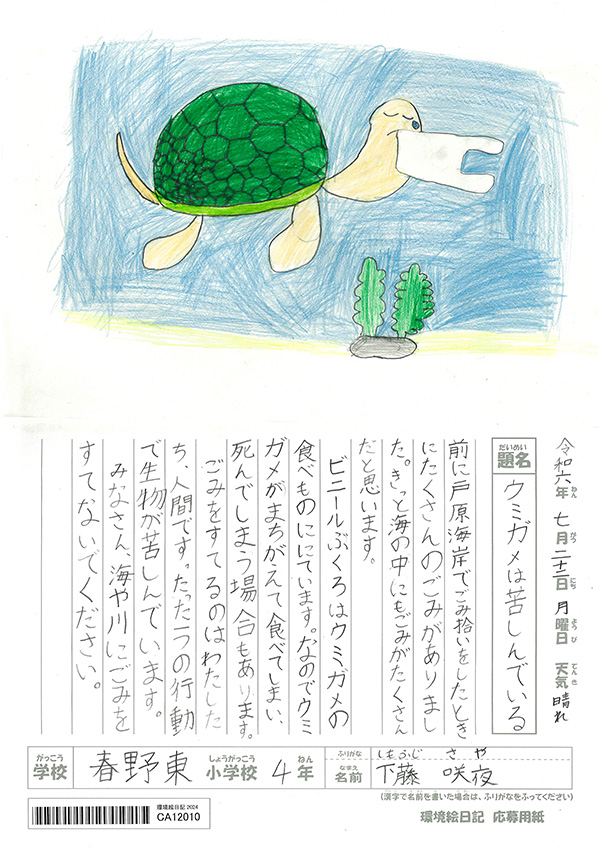 令和六年ねん 七月がつ二十二日にち 月曜日ようび 天気てんき 晴れ
だいめい
題名 ウミガメは苦しんでいる
前に戸原海岸でごみ拾いをしたとき
にたくさんのごみがありまし
た。きっと海の中にもごみがたくさん
だと思います。
ビニールぶくろはウミガメの
食べものににています。なのでウミ
ガメがまちがえて食べてしまい、
死んでしまう場合もあります。
ごみをすてるのはわたした
ち、人間です。たった一つの行動
で生物が苦しんでいます。
みなさん、海や川にごみを
すてないでください。
がっこう しょうがっこう ねん
学校 春野東 小学校 4年
ふりがな しもふじ さや
なまえ
名前 下藤 咲夜
(漢字で名前を書いた場合は、ふりがなをふってください)
環境絵日記 2024
CA12010
環境絵日記 応募用紙